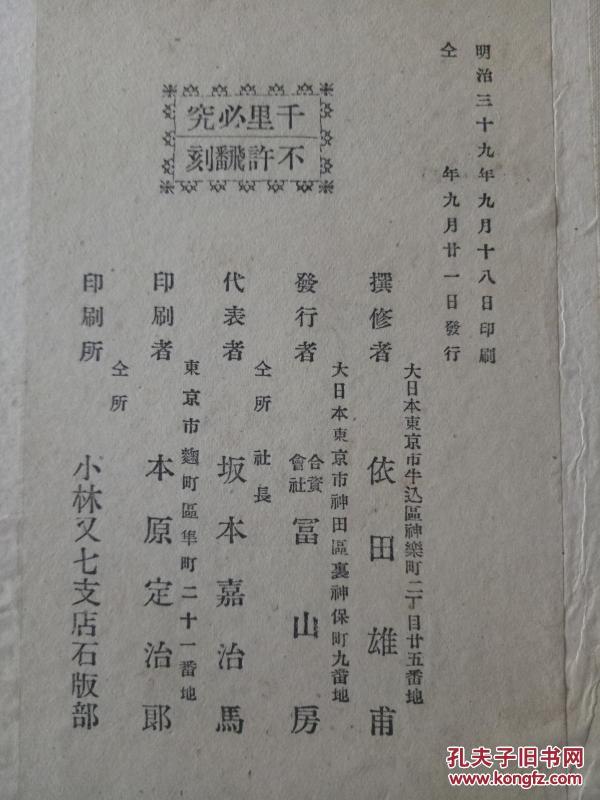 明治三十九年九月十八日印刷
仝　　年九月廿一日發行
千里必究
不許飜刻
大日本東京市牛込區神樂町二丁目廿五番地
撰修者　依田雄甫
大日本東京市神田區裏神保町九番地
發行者　合資會社　冨山房
仝所　社長
代表者　坂本嘉治馬
東京市麹町區隼町二十一番地
印刷者　本原定治郎
仝所
印刷所　小林又七支店石版部
孔夫子旧书网
www.kongfz.com